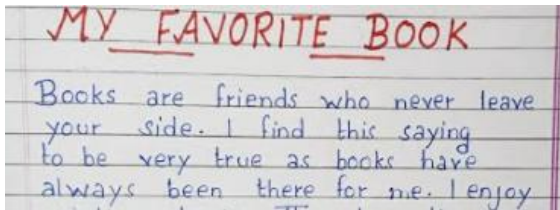 MY FAVORITE BOOK
Books are friends who never leave
your side. I find this saying
to be very true as books have
always been there for me. I enjoy